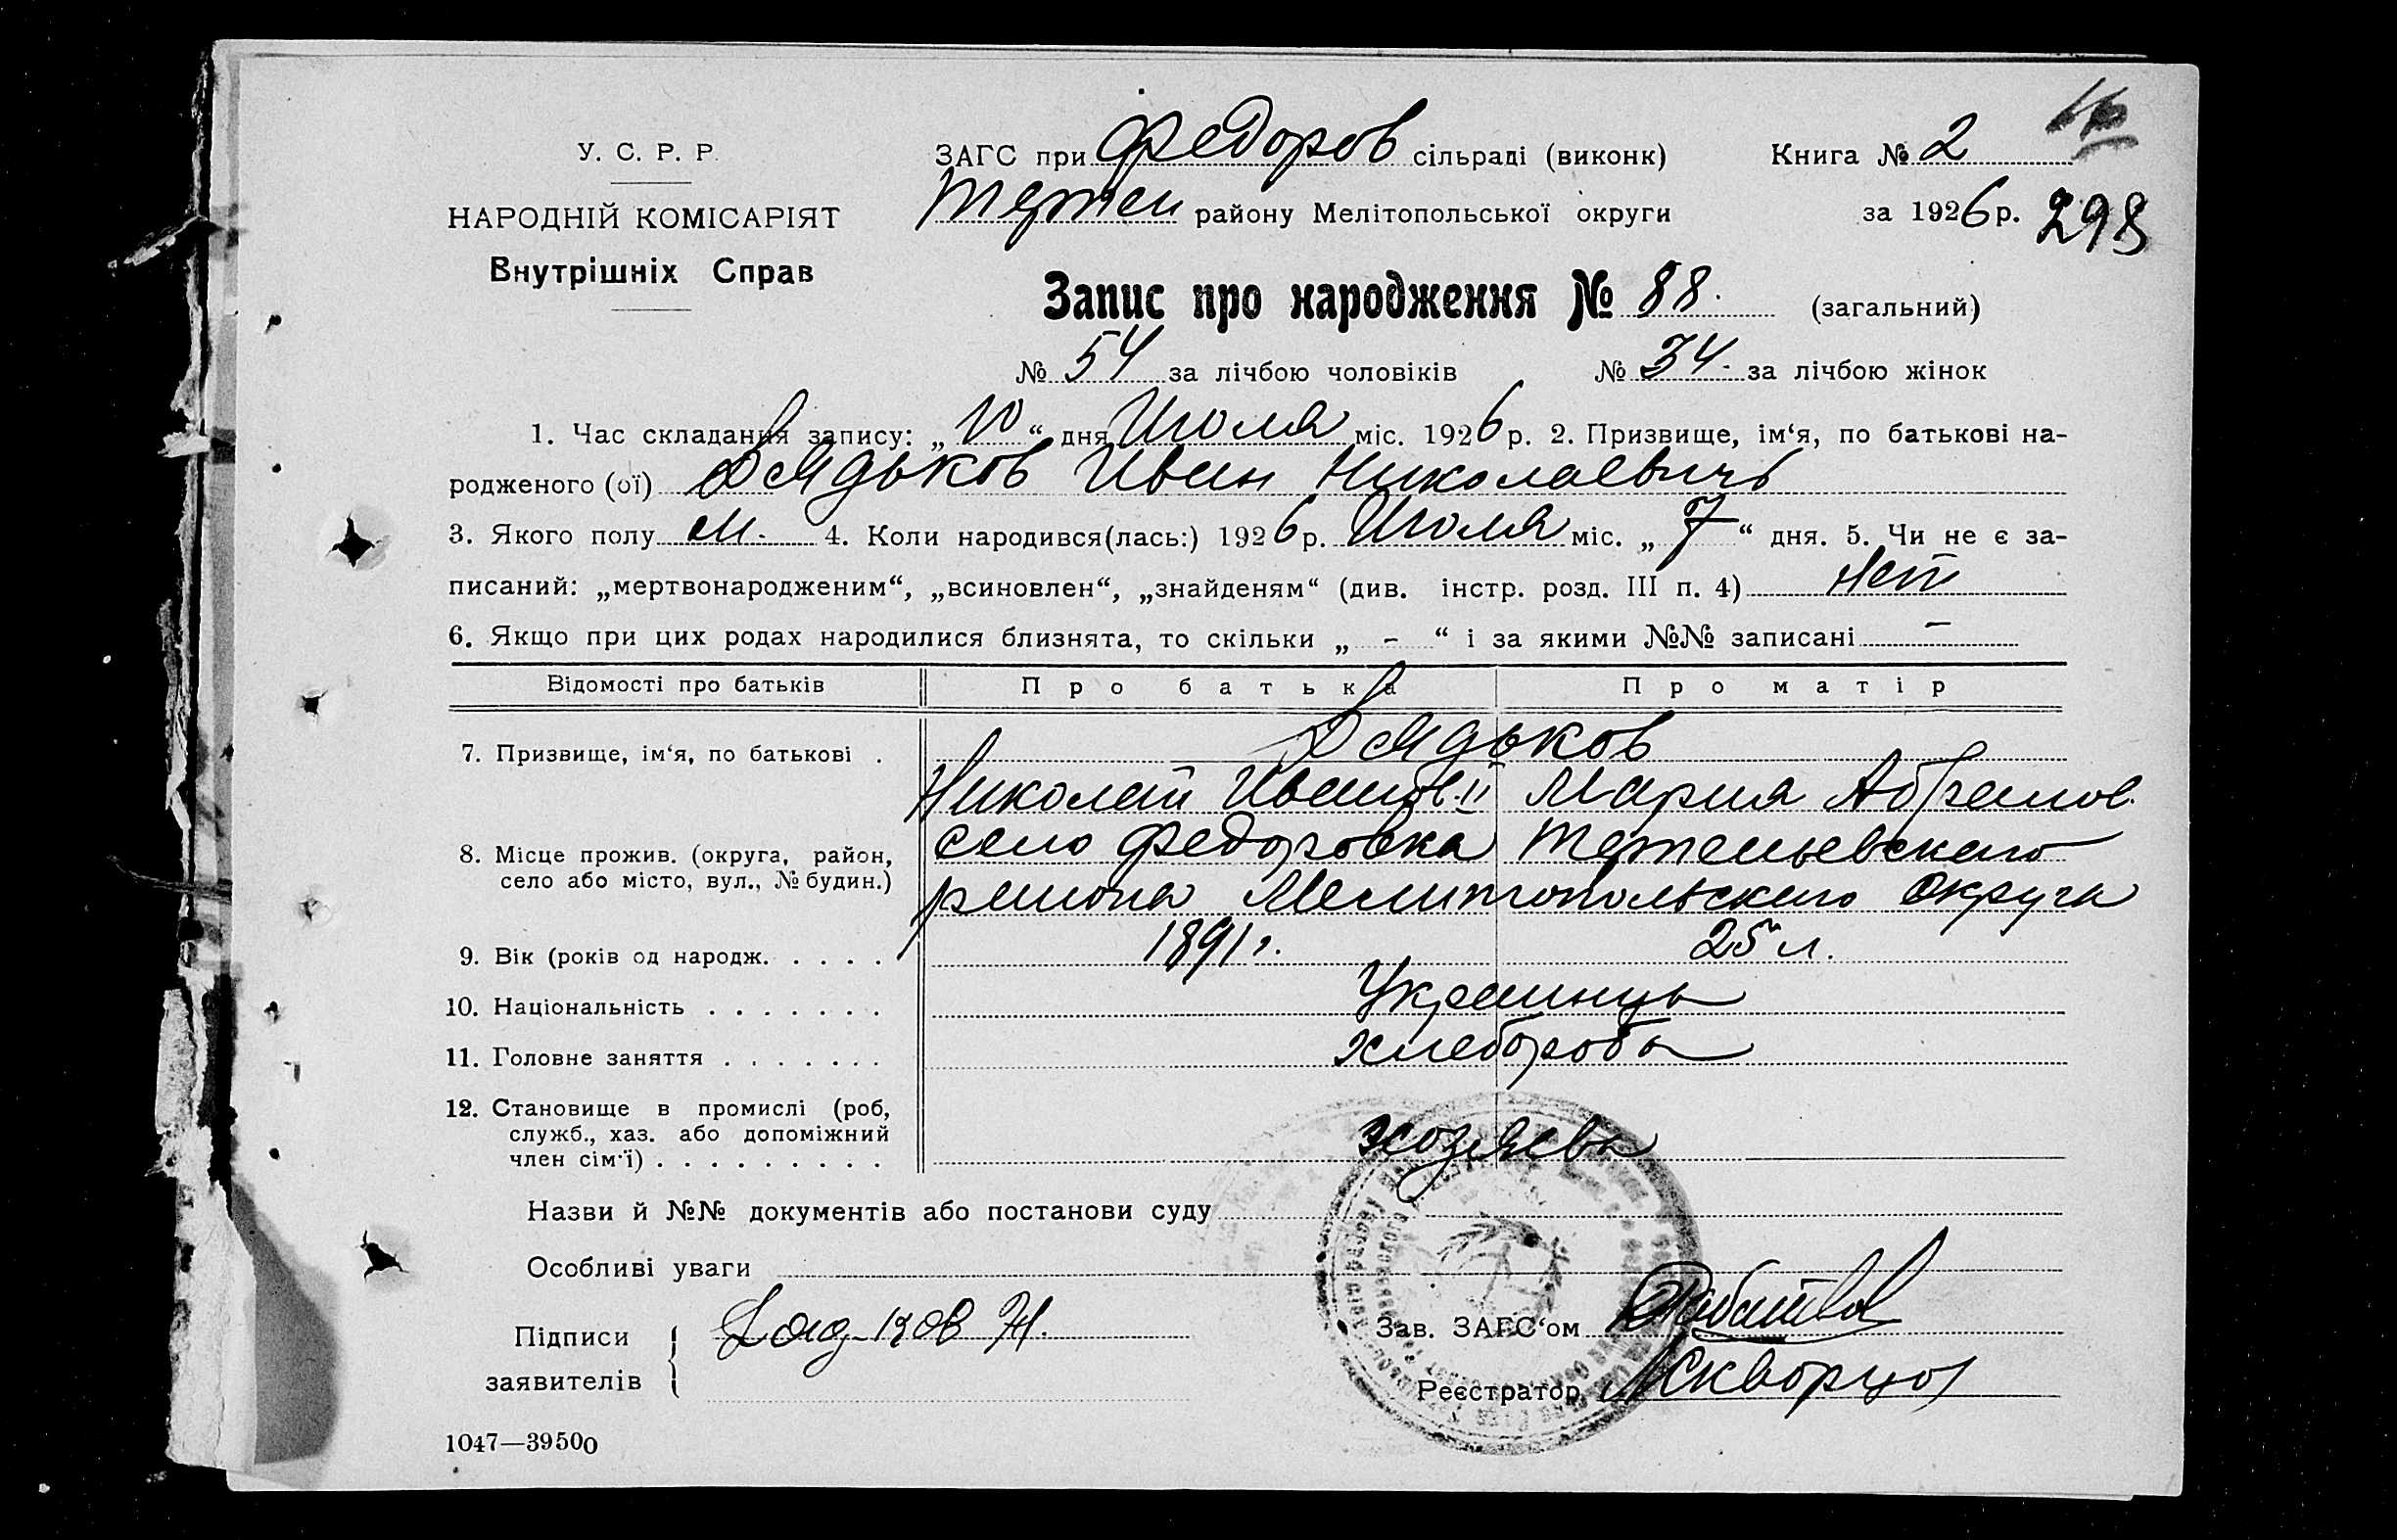 16
У. С. Р. Р.
НАРОДНІЙ КОМІСАРІЯТ
Внутрішніх Справ
ЗАГС при Федоров сільраді (виконк) Книга № 2
Терпен району Мелітопольської округи за 1926 р. 298
Запис про народження № 88. (загальний)
№ 54 за лічбою чоловіків № 34. за лічбою жінок
1. Час складання запису: „10“ дня Июля міс. 1926 р. 2. Призвище, ім‘я, по батькові на-
родженого (ої) Дядьков Иван Николаевичь
3. Якого полу м. 4. Коли народився(лась:) 1926 р. Июля міс. „7“ дня. 5. Чи не є за-
писаний: „мертвонародженим“, „всиновлен“, „знайденям“ (див. інстр. розд. III п. 4) Нет
6. Якщо при цих родах народилися близнята, то скільки „ - “ і за якими №№ записані —
Відомості про батьків Про батька Про матір
7. Призвище, ім‘я, по батькові . Дядьков
Николай Иванов. II Мария Абрамов.
8. Місце прожив. (округа, район, село Федоровка Терпеньевского
село або місто, вул., № будин.) района Мелитопольского Округа
9. Вік (років од народж. . . . . 1891 г. 25 л.
10. Національність . . . . . . . Украинцы
11. Головне заняття . . . . . . . хлеборобы
12. Становище в промислі (роб,
служб., хаз. або допоміжний хозяева
член сім‘ї) . . . . . . . . .
Назви й №№ документів або постанови суду
Особливі уваги
Підписи Дядьков Н. Зав. ЗАГС‘ом
заявителів Реєстратор Скворцов
1047—39500